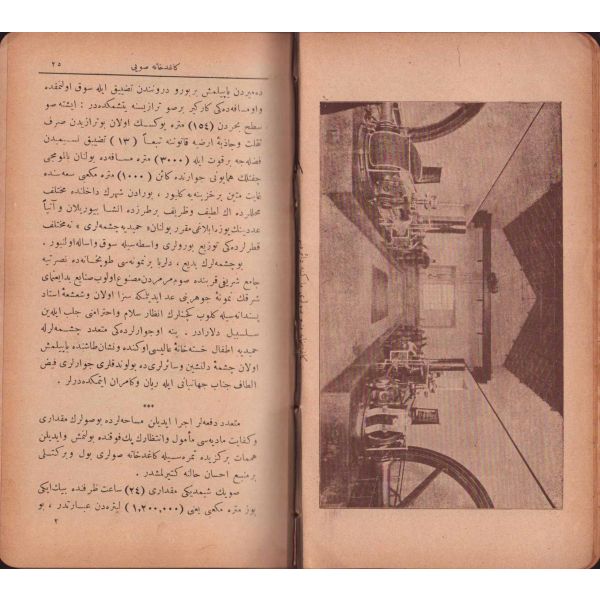 كاغدخانه صويى
٢٥
دميردن ياپيلمش بر بورو درونندن تضييق ايله سوق اولنمقده
واو مسافه ده كى كاركير بر صو ترازيسنه يتشمكده در : ايشته صو
سطح بحردن (١٥٤) متره يوكسك اولان بو ترازيدن صرف
ثقلت وجاذبهٔ ارضيه قانوننه تبعاً (١٣) تضييق نسيمیدن
فضله جه بر قوت ايله (٣٠٠٠) متره مسافه ده بولنان بالمومجى
چفتلك همايونى جوارنده كائن (١٠٠٠) متره مكعبى سعه سنده
غايت متين بر خزينه يه كليور ، بورادن شهرك داخلنده مختلف
محللرده اك لطيف وظريف بر طرزده انشا بيوريلان وآنياً
عددينك يوزه ابلاغى مقرر بولنان « حميديه چشمه لرى » نه مختلف
قطرلرده كى توزيع بورولرى واسطه سيله سوق واساله اولنيور .
بو چشمه لرك بديع ، دلربا بر نمونه سى طوپخانه ده نصرتيه
جامع شريفى قربنده صوم مرمردن مصنوع اولوب صنايع بدايعنماى
شرقك نمونهٔ جوهرينى عد ايدلمكه سزا اولان وشعشعهٔ استاد
پسندانه سيله كلوب كچنلرك انظار سلام واحترامنى جلب ايله ين
سلسبيل دلارادر . ينه او جوارلرده كى متعدد چشمه لرله
حميديه اطفال خسته خانهٔ عاليسى اوكنده ونشان طاشنده ياپيلمش
اولان چشمهٔ دلنشين وسائرلرى ده بولوندقلرى جوارلرى فيض
الطاف جناب جهانبانى ايله ريان وكامران ايتمكده درلر .
***
متعدد دفعه لر اجرا ايديلن مساحه لرده بو صولرك مقدارى
وكفايت ماديه سى مأمول وانتظارك پك فوقنده بولنمش وايديلن
هممات بركزيده ثمره سيله كاغدخانه صولرى بول وبركتلى
بر منبع احسان حالنه كتيرلمشدر .
صويك شيمديكى مقدارى (٢٤) ساعت ظرفنده بيك ايكى
يوز متره مكعبى يعنى (١,٢٠٠,٠٠٠) ليتره دن عبارتدر ، بو
٢